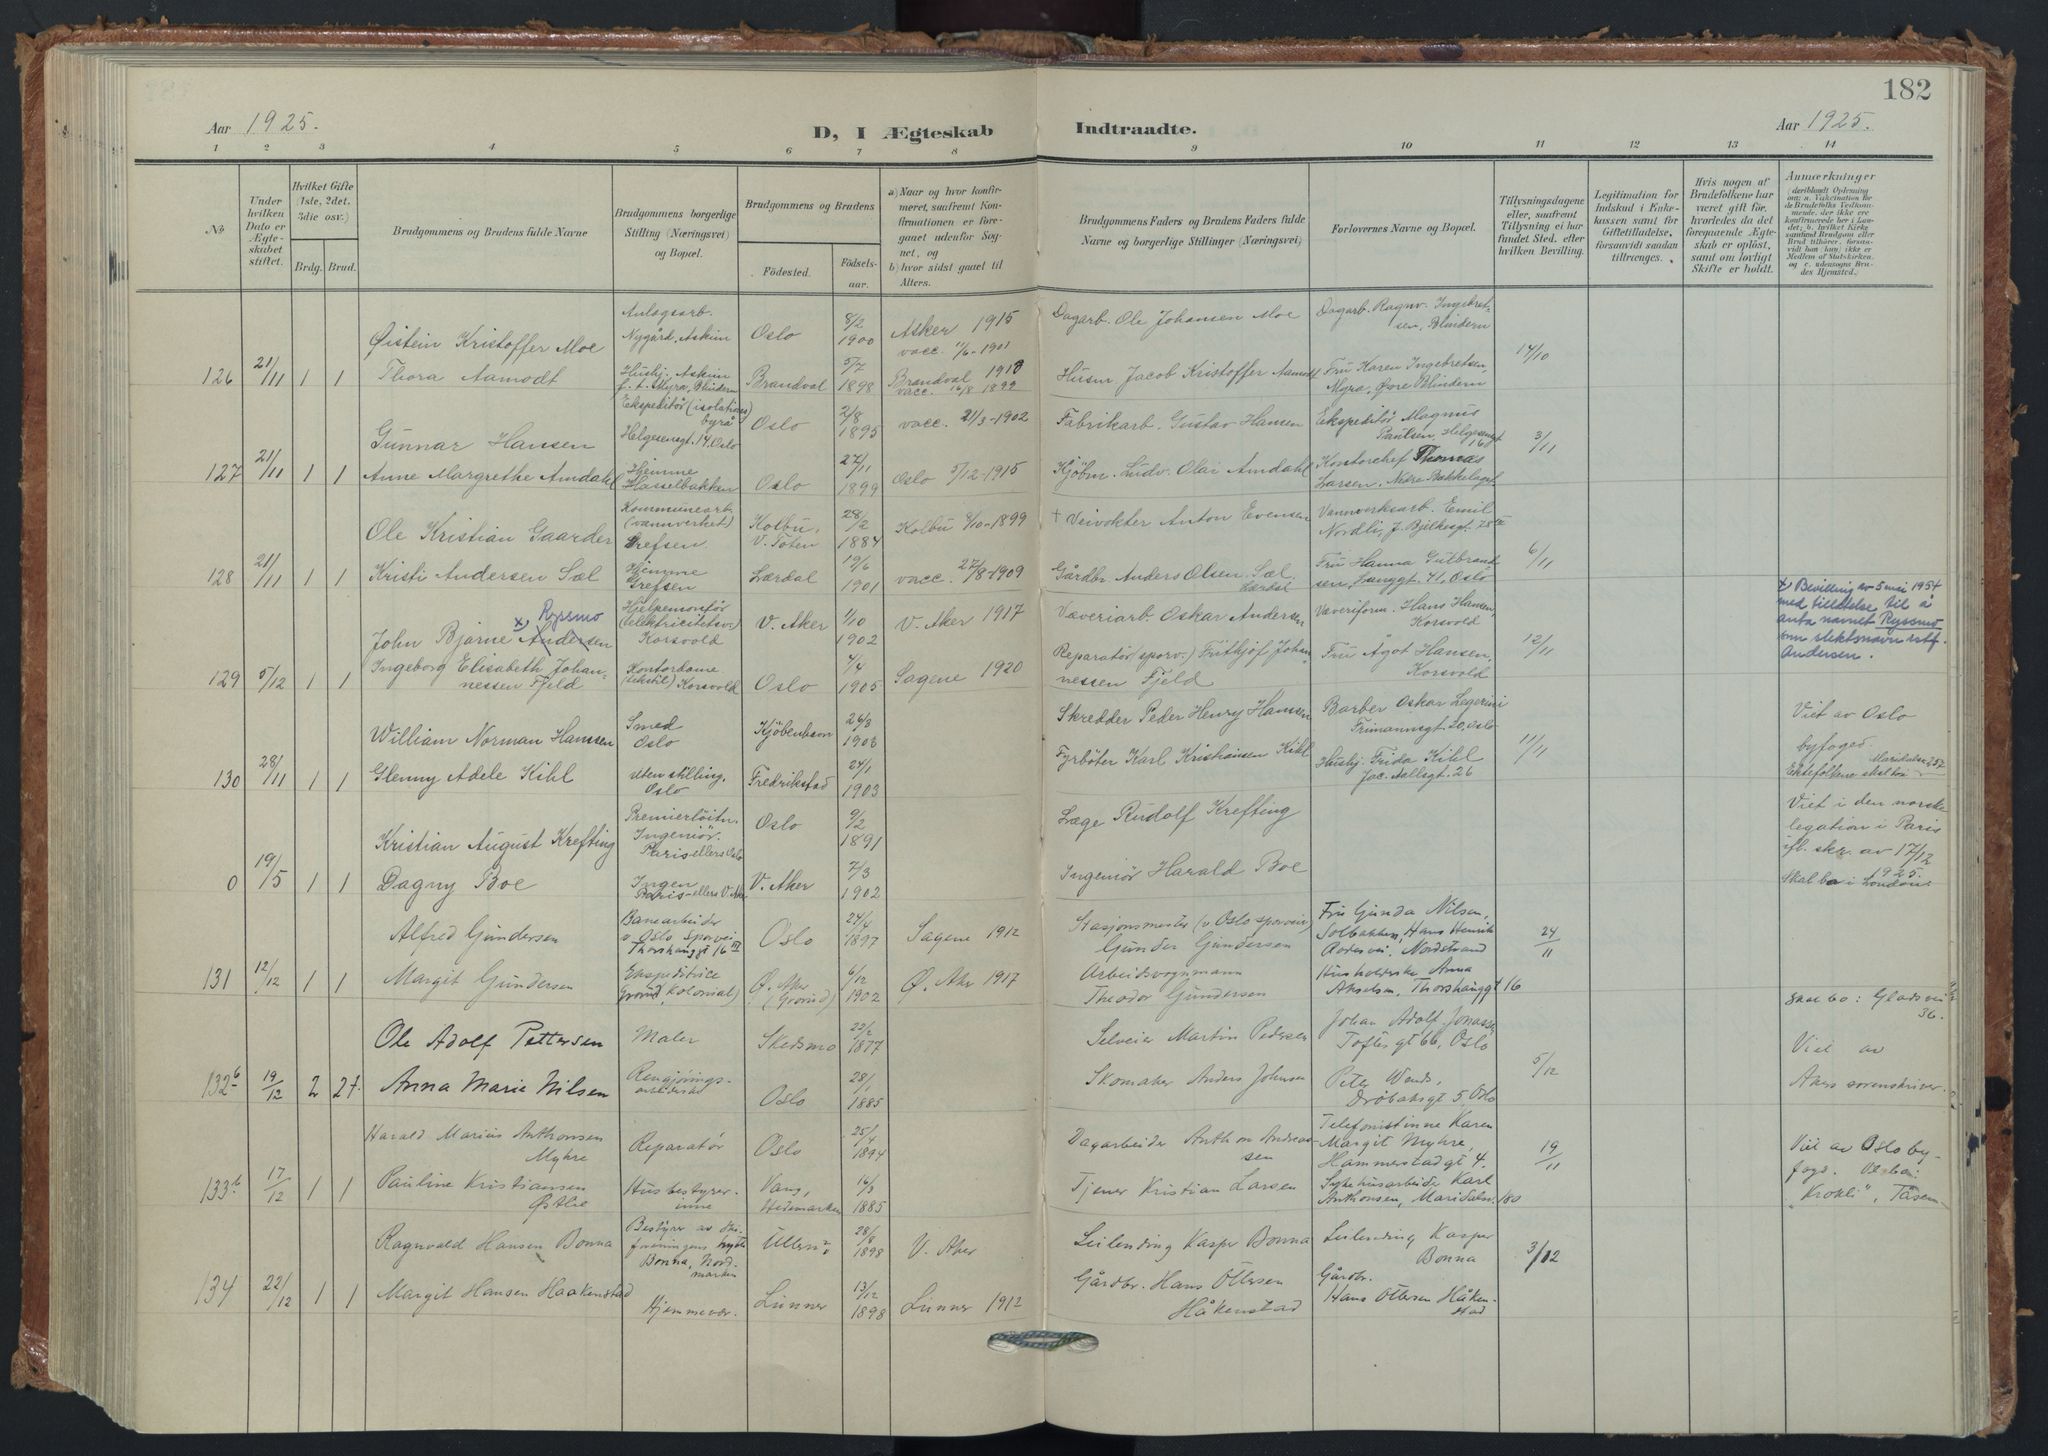 182
Aar 1925.
D, I Ægteskab Indtraadte.
Aar 1925.
1 2 3 4 5 6 7 8 9 10 11 12 13 14
No
Under hvilken Dato er Ægteskabet stiftet.
Hvilket Gifte (1ste, 2det, 3die osv.)
Brdg. Brud.
Brudgommens og Brudens fulde Navne
Brudgommens borgerlige Stilling (Næringsvei) og Bopæl.
Brudgommens og Brudens
Fødested.
Fødselsaar.
a) Naar og hvor konfirmeret, saafremt Konfirmationen er foregaaet udenfor Sognet, og
b) hvor sidst gaaet til Alters.
Brudgommens Faders og Brudens Faders fulde Navne og borgerlige Stillinger (Næringsvei)
Forlovernes Navne og Bopæl.
Tillysningsdagene eller, saafremt Tillysning ei har fundet Sted, efter hvilken Bevilling.
Legitimation for Indskud i Enkekassen samt for Giftetilladelse, forsaavidt saadan tiltrænges.
Hvis nogen af Brudefolkene har været gift før, hvorledes da det foregaaende Ægteskab er opløst, samt om lovligt Skifte er holdt.
Anmærkninger
Øistein Kristoffer Moe Anlægsarb. Nygård, Askim Oslo 8/2 1900 Asker 1915 vacc. 11/6-1901 Dagarb. Ole Johansen Moe Dagarb. Ragnv. Ingebretsen, Blindern
126 21/11 1 1 Thora Aamodt Hushj. Askim f. t. Myra, Blindern Brandval 5/7 1898 Brandval 1918 vacc. 16/8 1899 Husm. Jacob Kristoffer Aamodt Fru Karen Ingebretsen, Myra, Øvre Blindern 14/10
Gunnar Hansen Ekspeditør (isolationsbyrå) Helgesensgt. 14, Oslo Oslo 2/8 1895 vacc. 21/3-1902 Fabrikarb. Gustav Hansen Ekspeditør Magnus Paulsen, Helgesengt 16
127 21/11 1 1 Anne Margrethe Amdahl Hjemme Hasselbakken Oslo 27/11 1899 Oslo 5/12-1915 Kjøbm. Ludv. Olai Amdahl Kontorchef Thomas Larsen, Nedre Bækkelaget 3/11
Ole Kristian Gaarder Kommunearb. (vannverket) Grefsen. Kolbu, V. Toten 28/2 1884 Kolbu 8/10-1899 + Veivokter Anton Evensen Vannverksarb. Emil Nordli, J. Bjelkesgt. 78
128 21/11 1 1 Kristi Andersen Sæl Hjemme Grefsen Lærdal 19/6 1901 vacc. 27/8-1909 Gårdbr. Anders Olsen Sæl. Lærdal Fru Hanna Gulbrandsen, Langgt. 41, Oslo 6/11
John Bjarne x) Ryssmo Andersen Hjelpemontør (elektricitetsv.) Korsvold V. Aker 1/10 1902 V. Aker 1917 Væveriarb. Oskar Andersen Væveriform. Hans Hansen, Korsvold
x) Bevilling av 5 mai 1954 med tillatelse til å anta navnet Ryssmo som slektsnavn istf. Andersen.
129 5/12 1 1 Ingeborg Elisabeth Johannessen Fjeld Kontordame (tekstil) Korsvold Oslo 4/4 1905 Sagene 1920 Reparatør (sporv.) Fritjhof Johannessen Fjeld Fru Ågot Hansen, Korsvold 12/11
William Norman Hanssen Smed Oslo Kjøbenhavn 26/3 1903 Skredder Peder Henry Hanssen Barber Oskar Lagerini Frimannsgt. 20, Oslo Viet av Oslo byfoged.
130 28/11 1 1 Glenny Adele Kihl Uten stilling, Oslo Fredrikstad 24/1 1903 Fyrbøter Karl Kristiansen Kihl Hushj. Frida Kihl Jac. Aallsgt. 26 11/11 Ektefolkene skal bo Maridalsv. 257
Kristian August Krefting Premierløitn. Ingeniør. Paris ellers Oslo Oslo 9/2 1891 Læge Rudolf Krefting Viet i den norske legation i Paris ifl. skr. av 17/12 1925.
0 19/5 1 1 Dagny Boe Ingen Paris - ellers V. Aker V. Aker 7/3 1902 Ingeniør Harald Boe Skal bo i London
Alfred Gundersen Banearbeider v. Oslo sporvei Thorshauggt 16 III Oslo 24/4 1897 Sagene 1912 Stasjonsmester (v Oslo sporvei) Gunder Gundersen Fru Gunda Nilsen, Solbakken, Hans Henrik vei, Nordstrand
131 12/12 1 1 Margit Gundersen Ekspeditrice Grorud, Kolonial) Ø. Aker (Grorud) 6/12 1902 Ø. Aker 1917 Arbeidsvognmann Theodor Gundersen Husholderske Anna Akselsen, Thorshauggt 16 24/11
Skal bo: Gladsvei 36.
Ole Adolf Pettersen Maler Skedsmo 22/2 1877 Selveier Martin Pedersen Johan Adolf Jonassen Toftes gt 66, Oslo Viet av
132 b 19/12 2 2f. Anna Marie Nilsen Rengjøringsarbeiderske Oslo 28/1 1885 Skomaker Anders Johnsen Peter Drøbaksgt 5, Oslo 5/12 Akers sorenskriver.
Harald Marius Anthonsen Myhre Reparatør Oslo 25/4 1894 Dagarbeider Anthon Andreassen Telefonistinne Karen Margit Myhre, Hammerstadgt 4. Viet av Oslo byfogd.
133 b 17/12 1 1 Pauline Kristiansen Østlie Husbestyrerinne Vang, Hedemarken 16/3 1885 Tjener Kristian Larsen Sykehusarbeider Karl Anthonsen, Maridalsv. 180 19/11 "Krokli", Tåsen
Ragnvald Hansen Bonna Bestyrer av Skiforeningens hytte Bonna, Nordmarken Ullern 28/8 1898 V. Aker Leilending Kasper Bonna Leilending Kasper Bonna
134 22/12 1 1 Margit Hansen Haakenstad Hjemmevær. Lunner 13/12 1898 Lunner 1912 Gårdbr. Hans Ottersen Håkenstad Gårdbr. Hans Ottersen Håkenstad 3/12